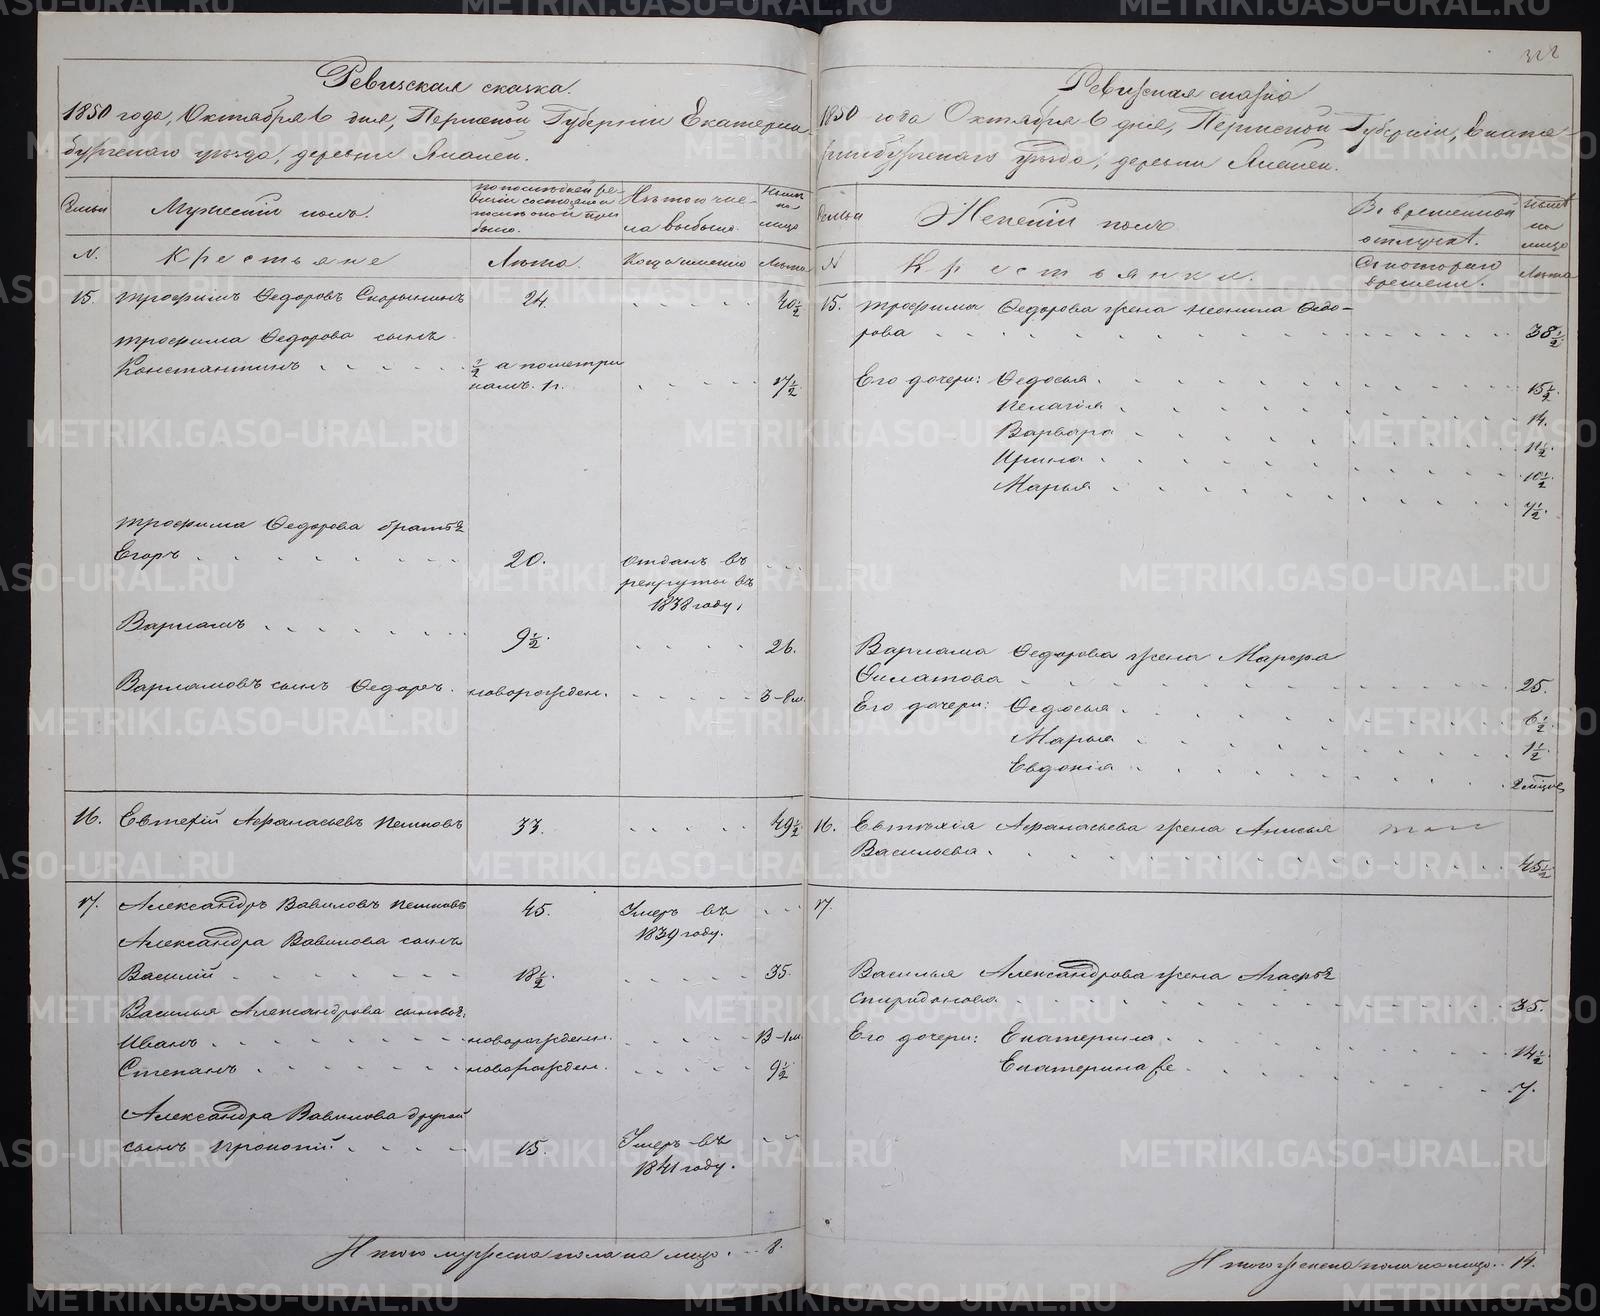 322
Ревизская сказка.
1850 года, Октября 6 дня, Пермской Губернии Екатерин-
бургскаго уезда, деревни
Семьи
Мужескій полъ.
по последней ре-
визіи состояло и
после оной при
было.
Изъ того чис-
ла выбыло.
Ныне
на
лицо
N.
Крестьяне
Лета.
Когда именно
Лета
15. Трофимъ Ѳедоровъ 24. 40½
Трофима Ѳедорова сынъ
Константинъ ½ а по метри
камъ. 1 г. 17½
Трофима Ѳедорова братья
Егоръ 20. отданъ въ
рекруты въ
1838 году,
Варламъ 9½. 26.
Варламовъ сынъ Ѳедоръ. новорожден. 3-в м.
16. Евтехій Афанасьевъ Пешковъ 33. 49½
17. Александръ Вавиловъ Пешковъ 45. Умеръ въ
1839 году.
Александра Вавилова сынъ
Василій 18½ 35.
Василья Александрова сыновья:
Иванъ новорожден. 13-1м
Степанъ новорожден. 9½
Александра Вавилова другой
сынъ Прокопій. 15. Умеръ въ
1841 году.
Итого мужеска пола на лицо. 8.
Ревизская сказка
1850 года Октября 6 дня, Пермской Губерніи, Екате-
ринбургскаго уезда, деревни
Семьи
Женскій полъ
Во временной
отлучке.
Ныне
на
лицо
N
Крестьянки.
Съ котораго
времени.
Лета
15. Трофима Ѳедорова жена Неонила Ѳедо-
рова 38½.
Его дочери: Ѳедосья 15½
Пелагія 14.
Варвара 11½
Ирина 10½
Марья 7½.
Варлама Ѳедорова жена Марфа
Филатова 25.
Его дочери: Ѳедосья 6½
Марья 1½
Евдокія 2 месяцев
16. Евтехія Афанасьева жена Анисья
Васильева 45½
17.
Василья Александрова жена Агафья
Спиридонова 35.
Его дочери: Екатерина 14½
Екатерина же 7.
Итого женска пола на лицо 14.
METRIKI.GASO-URAL.RU